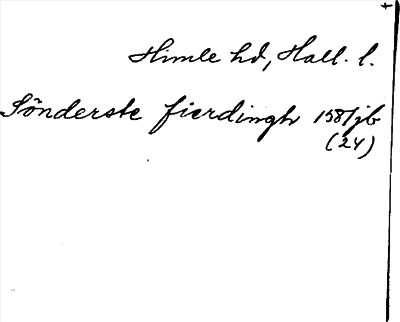 Himle hd, Hall. l.
Sönderste fierdingh 1581 jb
(24)